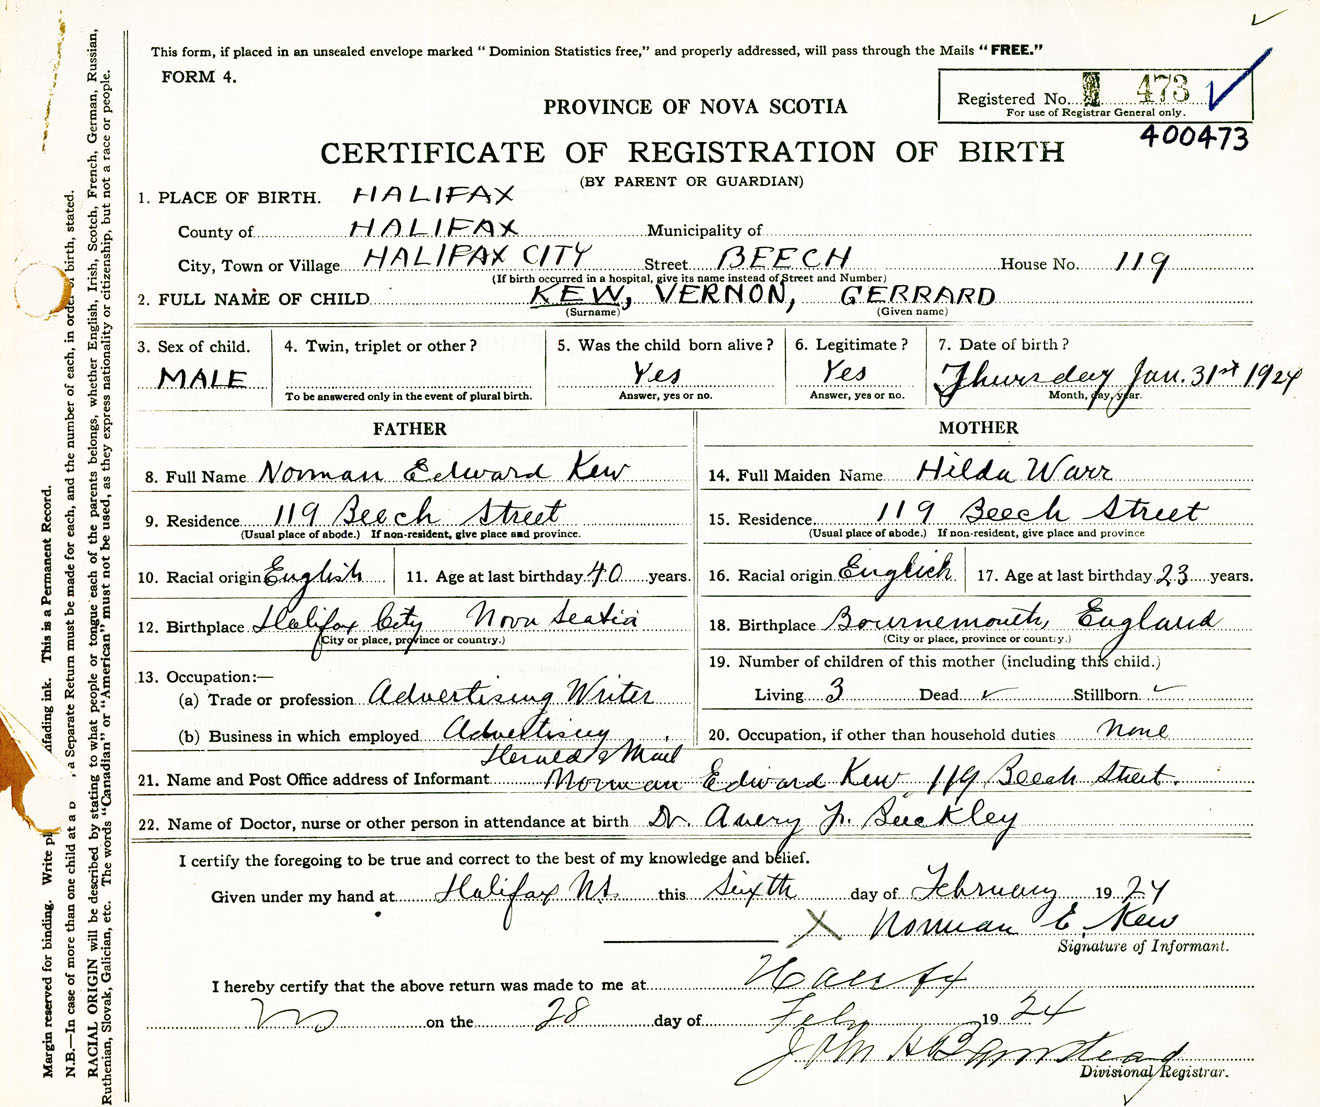 This form, if placed in an unsealed envelope marked " Dominion Statistics free," and properly addressed, will pass through the Mails "FREE."
FORM 4.
Registered No. 473
For use of Registrar General only.
400473
PROVINCE OF NOVA SCOTIA
CERTIFICATE OF REGISTRATION OF BIRTH
(BY PARENT OR GUARDIAN)
1. PLACE OF BIRTH. HALIFAX
County of HALIFAX Municipality of
City, Town or Village HALIFAX CITY Street BEECH House No. 119
(If birth occurred in a hospital, give its name instead of Street and Number)
2. FULL NAME OF CHILD KEW, VERNON, GERRARD
(Surname) (Given name)
3. Sex of child. 4. Twin, triplet or other? 5. Was the child born alive? 6. Legitimate? 7. Date of birth?
MALE Yes Yes Thursday Jan. 31st 1924
To be answered only in the event of plural birth. Answer, yes or no. Answer, yes or no. Month, day, year.
FATHER MOTHER
8. Full Name Norman Edward Kew 14. Full Maiden Name Hilda Warr
9. Residence 119 Beech Street 15. Residence 119 Beech Street
(Usual place of abode.) If non-resident, give place and province. (Usual place of abode.) If non-resident, give place and province
10. Racial origin English 11. Age at last birthday 40 years. 16. Racial origin English 17. Age at last birthday 23 years.
12. Birthplace Halifax City Nova Scotia 18. Birthplace Bournemouth, England
(City or place, province or country.) (City or place, province or country.)
13. Occupation:— 19. Number of children of this mother (including this child.)
(a) Trade or profession Advertising Writer Living 3 Dead ✓ Stillborn ✓
(b) Business in which employed Advertising 20. Occupation, if other than household duties none
Herald & Mail
21. Name and Post Office address of Informant Norman Edward Kew, 119 Beech Street.
22. Name of Doctor, nurse or other person in attendance at birth Dr. Avery F. Buckley
I certify the foregoing to be true and correct to the best of my knowledge and belief.
Given under my hand at Halifax N.S. this Sixth day of February 1924
X Norman E. Kew
Signature of Informant.
I hereby certify that the above return was made to me at Halifax
NS on the 28 day of Feb 1924
John H Barnstead
Divisional Registrar.
Margin reserved for binding. Write pl nfading ink. This is a Permanent Record.
N.B.—In case of more than one child at a , a Separate Return must be made for each, and the number of each, in order of birth, stated.
RACIAL ORIGIN will be described by stating to what people or tongue each of the parents belongs, whether English, Irish, Scotch, French, German, Russian,
Ruthenian, Slovak, Galician, etc. The words "Canadian" or "American" must not be used, as they express nationality or citizenship, but not a race or people.